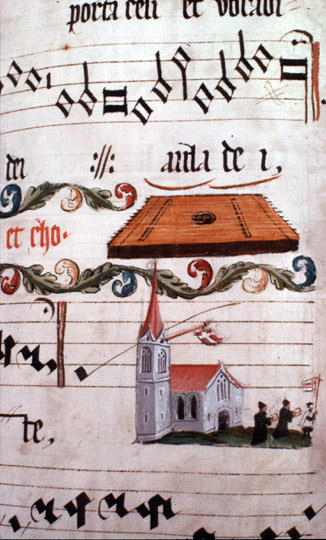 porta celi et vocabi
dei :||: aula de i,
et cho.
te,